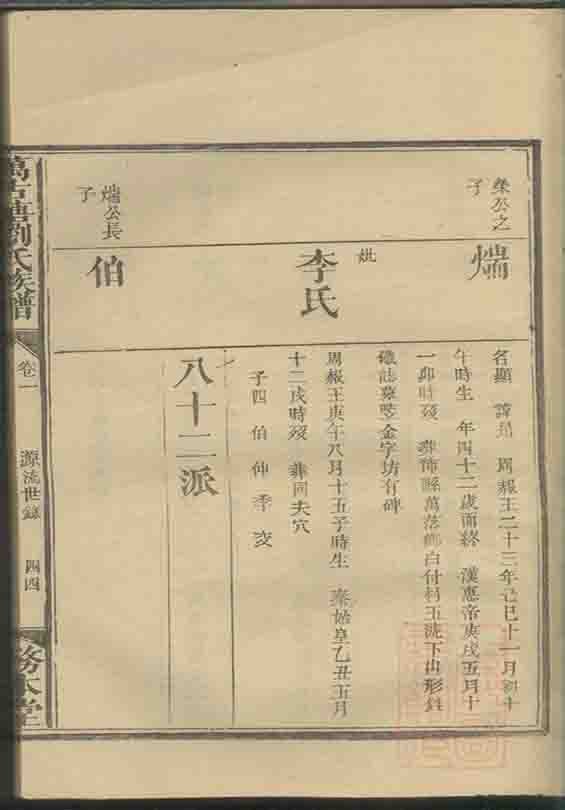 榮公之
子
煓
名顯 諱昂 周赧王二十三年己巳十一月初十
午時生 年四十二歲而終 漢惠帝庚戌五月十
一卯時歿 葬沛縣萬落鄉白付村玉流下山形鉎
礠誌墓塋金字坊有碑
妣
李氏
周赧王庚午八月十五子時生 秦始皇乙丑五月
十二戌時歿 葬同夫穴
子四 伯 仲 季 交
八十二派
煓公長
子
伯
萬古塘劉氏族譜
卷一
源流世錄
四四
務本堂